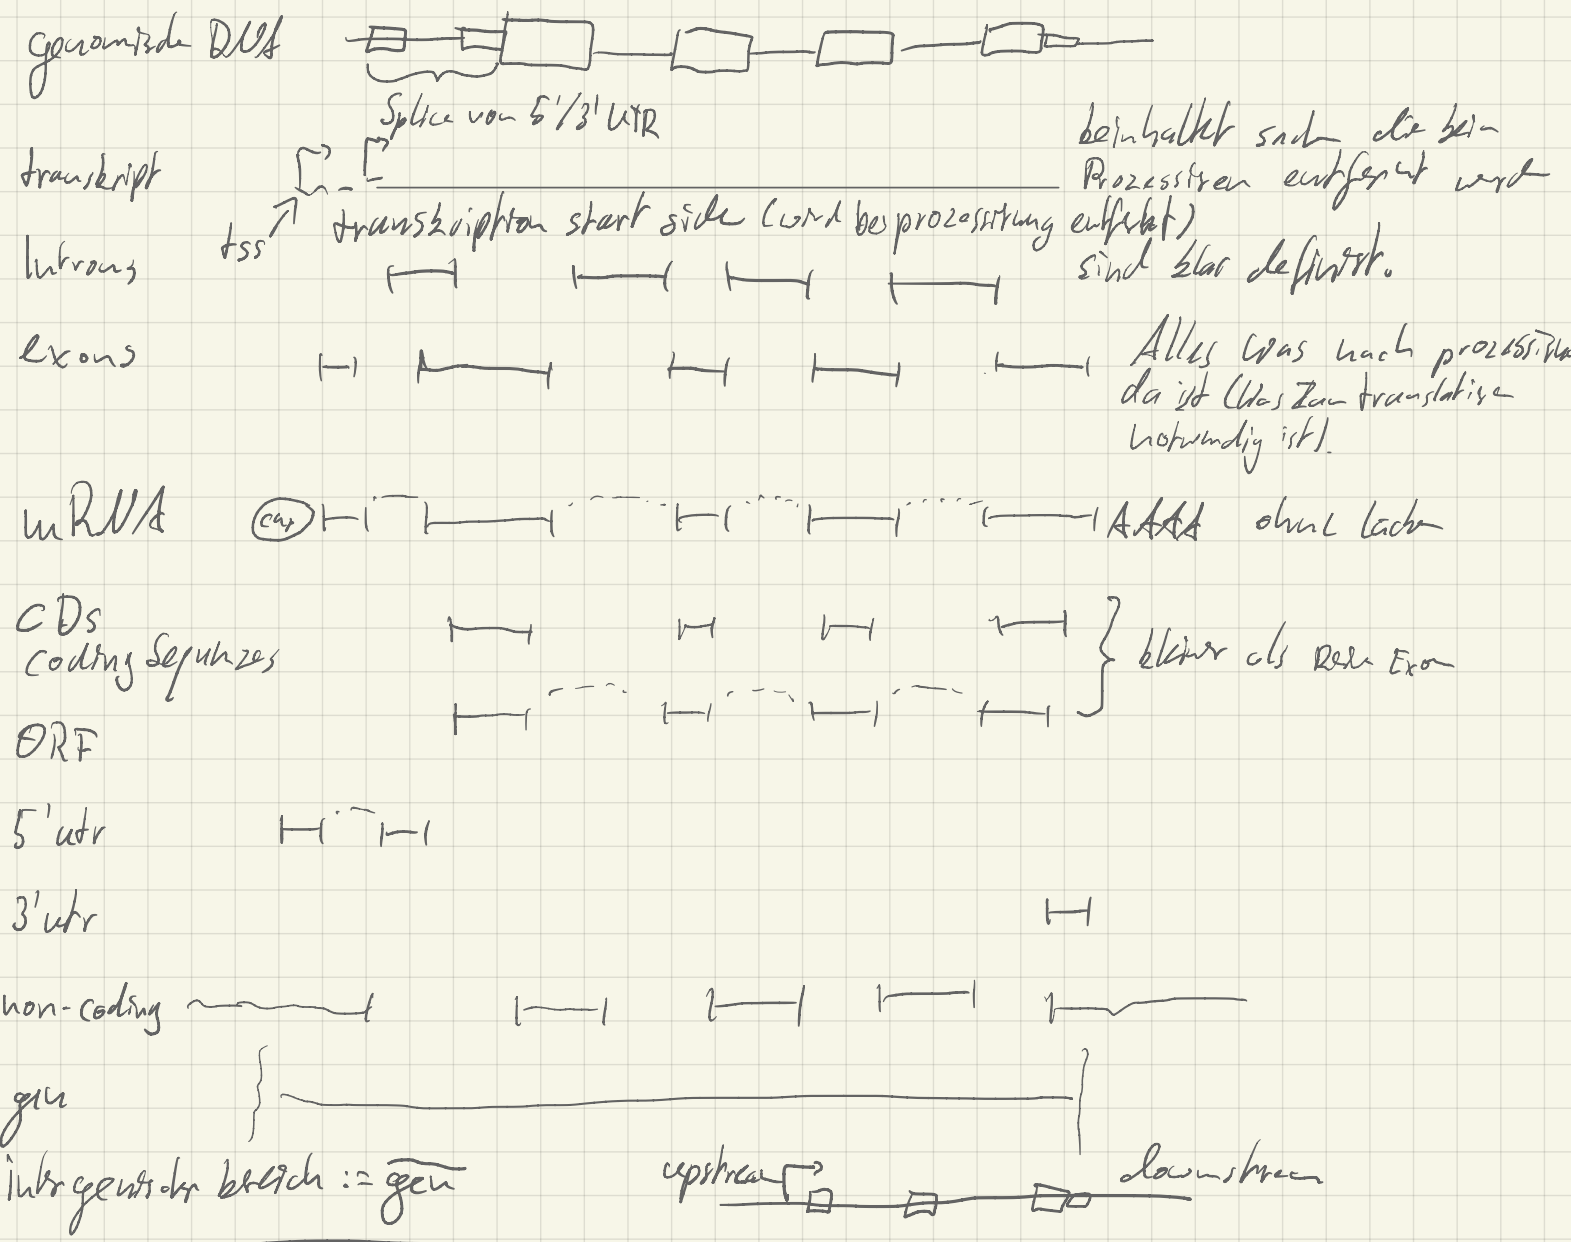 genomische DNA
Splice von 5'/3' UTR
transkript
beinhaltet
die beim
Prozessiren entfernt werde
tss
transkription start side (wird bei prozessirung entfernt)
sind klar definirt.
Introns
exons
Alles was nach
da ist (Was zur translation
notwendig ist).
mRNA
cap
AAAA ohne
CDs
Coding Sequnzes
kleiner als Rein Exon
ORF
5'utr
3'utr
non-coding
gen
intergenischer bereich := gen
upstream
downstream